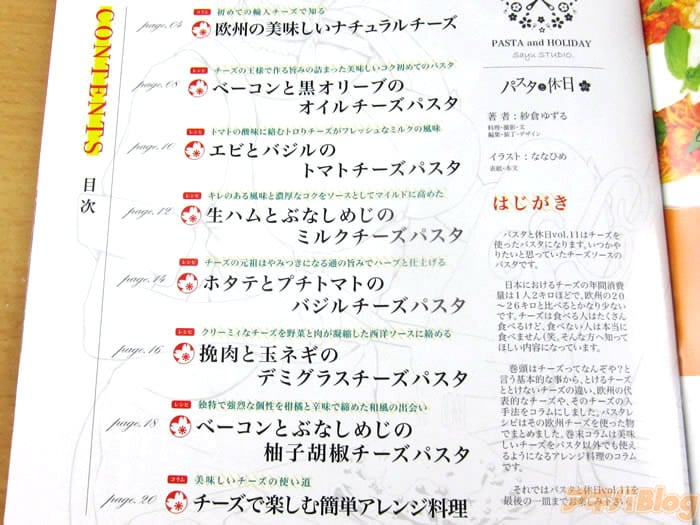 CONTENTS
目次
コラム
初めての輸入チーズで知る
page.04
欧州の美味しいナチュラルチーズ
レシピ
チーズの王様で作る旨みの詰まった美味しいコク初めてのパスタ
page.08
ベーコンと黒オリーブの
オイルチーズパスタ
レシピ
トマトの酸味に絡むトロりチーズがフレッシュなミルクの風味
page.10
エビとバジルの
トマトチーズパスタ
レシピ
キレのある風味と濃厚なコクをソースとしてマイルドに高めた
page.12
生ハムとぶなしめじの
ミルクチーズパスタ
レシピ
チーズの元祖はやみつきになる通の旨みでハーブと仕上げる
page.14
ホタテとプチトマトの
バジルチーズパスタ
レシピ
クリーミィなチーズを野菜と肉が凝縮した西洋ソースに絡める
page.16
挽肉と玉ネギの
デミグラスチーズパスタ
レシピ
独特で強烈な個性を柑橘と辛味で締めた和風の出会い
page.18
ベーコンとぶなしめじの
柚子胡椒チーズパスタ
コラム
美味しいチーズの使い道
page.20
チーズで楽しむ簡単アレンジ料理
PASTA and HOLIDAY
Sayu STUDIO.
パスタと休日
著者：紗倉ゆずる
料理・撮影・文
編集・装丁・デザイン
イラスト：ななひめ
表紙・本文
はじがき
パスタと休日vol.11はチーズを
使ったパスタになります。いつかや
りたいと思っていたチーズソース
のパスタです。
日本におけるチーズの年間消費
量は1人2キロほどで、欧州の20
～26キロと比べるとかなり少ない
です。チーズは食べる人はたくさん
食べるけど、食べない人は本当に
食べません(笑、そんな方へ知って
ほしい内容になっています。
巻頭はチーズってなんぞや？と
言う基本的な事から、とけるチーズ
ととけないチーズの違い、欧州の代
表的なチーズや、そのチーズの入
手法をコラムにしました。パスタレ
シピはその欧州チーズを使った物
でまとめました。巻末コラムは美味
しいチーズをパスタ以外でも使え
るようになるアレンジ料理のコラム
です。
それではパスタと休日vol.11を
最後の一皿までお楽しみ下さい。
Blog